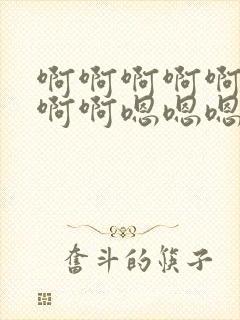 啊啊啊啊啊
啊啊嗯嗯嗯
奋斗的筷子